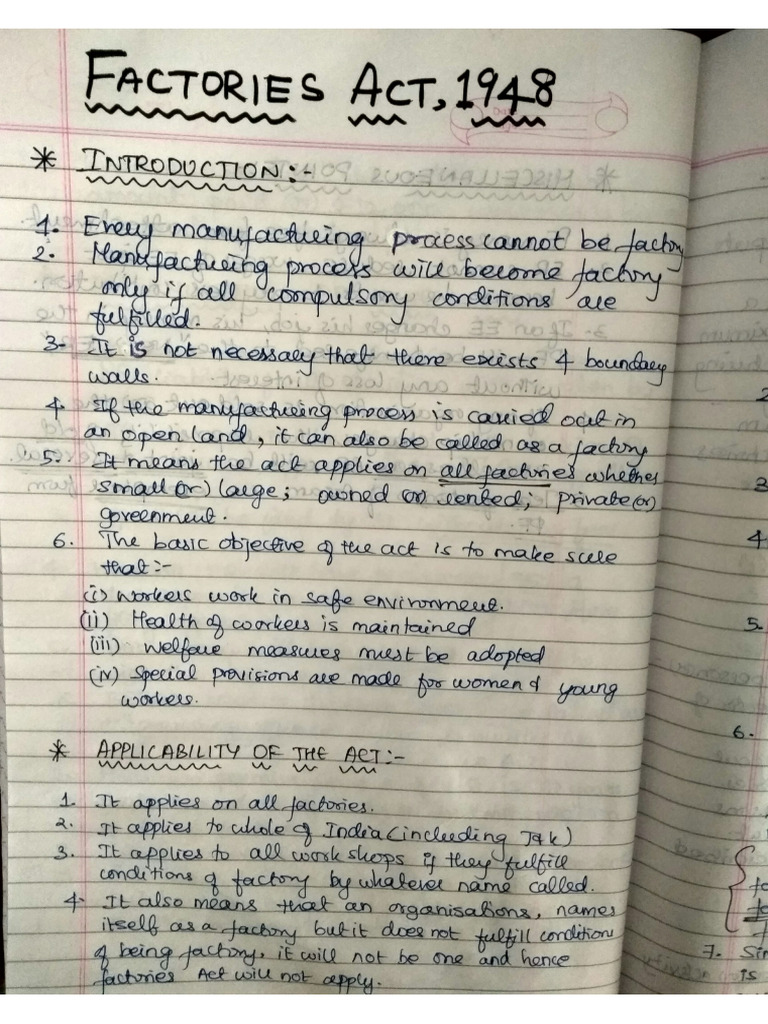 FACTORIES ACT, 1948
* INTRODUCTION:-
1. Every manufactueing process cannot be factory
2. Manufactueing process will become factory
only if all compulsory conditions are
fulfilled.
3- It is not necessary that there exists 4 boundary
walls.
4- If the manufactueing process is carried out in
an open land, it can also be called as a factory
5. It means the act applies on all factories whether
small (or) large; owned (or) rented; private (or)
government.
6. The basic objective of the act is to make sure
that:-
(i) Workers work in safe environment.
(ii) Health of workers is maintained
(iii) Welfare measures must be adopted
(iv) Special provisions are made for women & young
workers.
* APPLICABILITY OF THE ACT:-
1. It applies on all factories.
2. It applies to whole of India (including J&K)
3. It applies to all workshops if they fulfill
conditions of factory by whatever name called.
4- It also means that an organisations, names
itself as a factory but it does not fulfill condition
of being factory, it will not be one and hence
factories Act will not apply.
2
3
4-
5.
6.
7. Sin
is